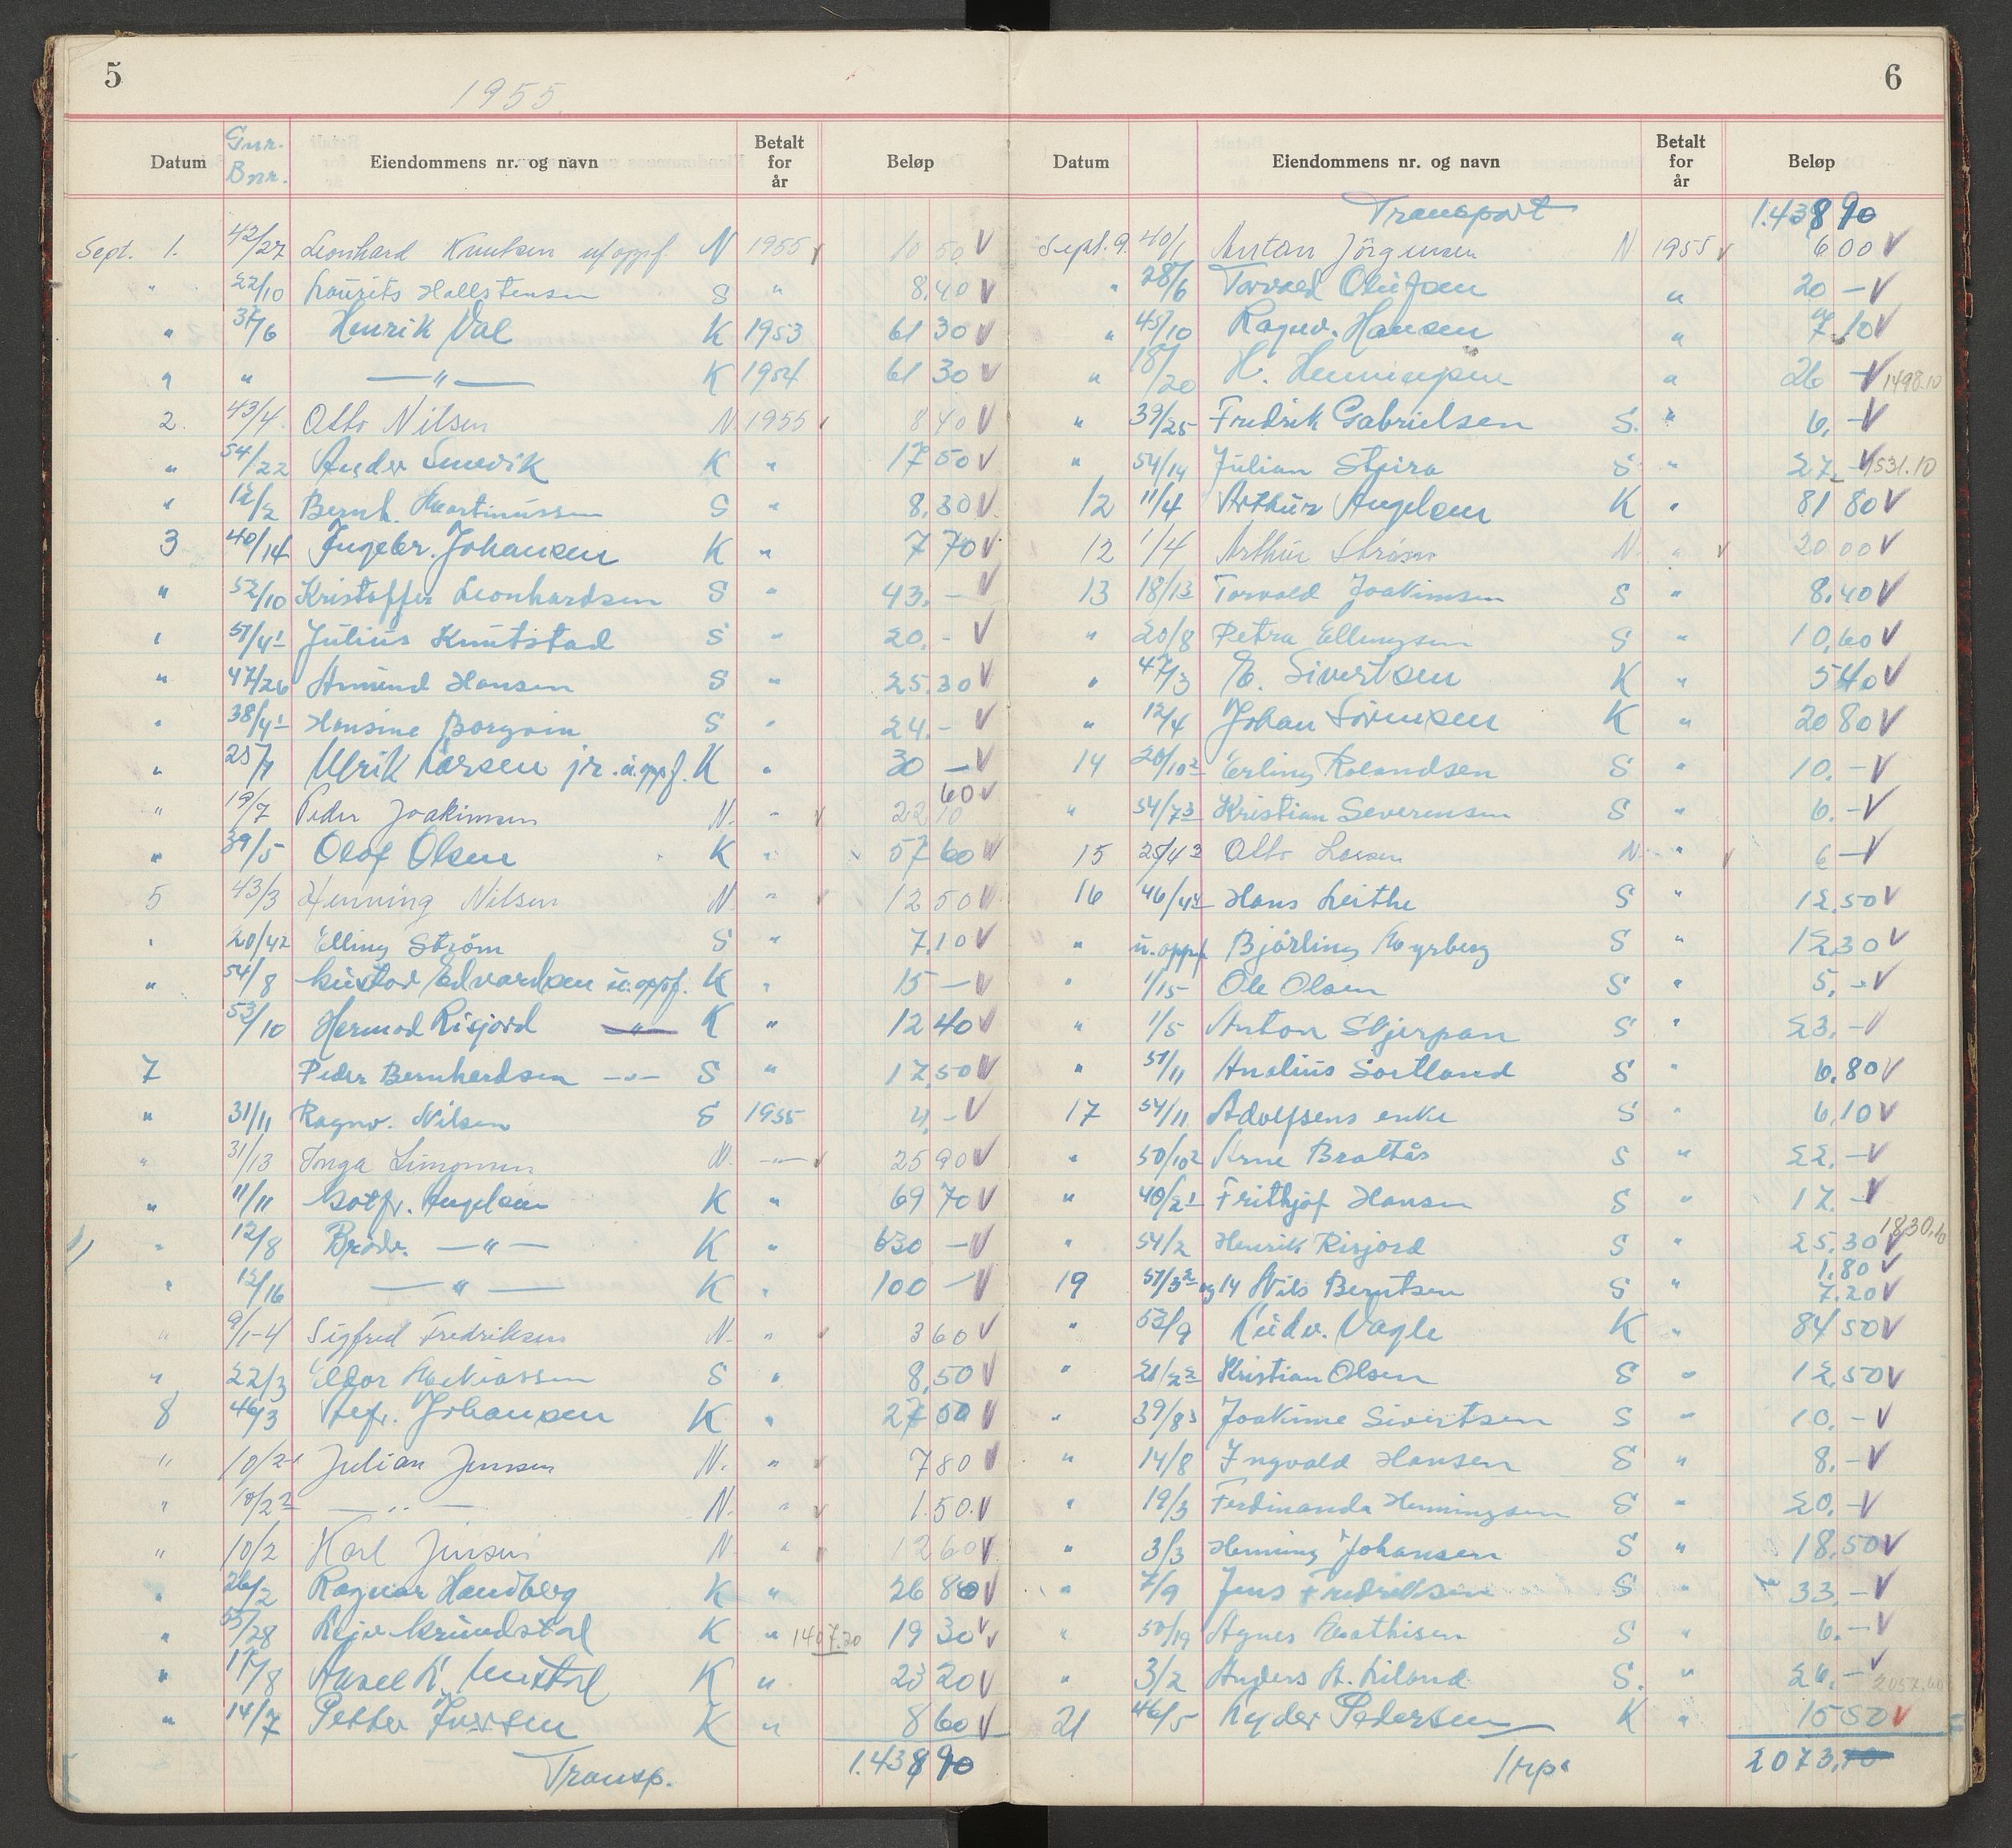 5
1955
Datum Gnr. Bnr. Eiendommens nr. og navn Betalt for år Beløp
Sept. 1. 42/27 Leonhard Knutsen u/oppf. N 1955 10 50 V
" 22/10 Laurits Hallstensen S " 8.40 V
" 37/6 Henrik Val K 1953 61 30 V
" " — " — K 1954 61 30 V
2. 43/4. Otto Nilsen N. 1955 8 40 V
" 54/22 K " 17 50 V
" 12/2 Bernh. Martinussen S " 8.30 V
3 40/14 Ingebr. Johansen K " 7 70 V
" 52/10 Kristoffer Leonhardsen S " 43.- V
" 51/41 Julius Knutstad S " 20.- V
" 47/26 Amund Hansen S " 25.30 V
" 38/41 Hansine Borgvin S " 24.- V
" 25/7 Ulrik Larsen jr. u.oppf. K " 30 — V
" 19/7 Peder Joakimsen N. " 22 10 60 V
" 39/5 Olaf Olsen K " 57 60 V
5 43/3 Henning Nilsen N. " 12 50 V
" 20/42 Elling Strøm S " 7.10 V
" 54/8 Gustav Edvardsen u.oppf. K " 15 — V
53/10 Hermod Risjord " K " 12 40 V
7 Peder Bernhardsen — " — S " 17.50 V
" 31/11 Ragnv. Nilsen S 1955 4.- V
" 31/13 Inga Simonsen N. — " — 25 90 V
" 11/11 Gotfr. Angelsen K " 69 70 V
" 12/8 Brødr. — " — K " 630 — V
" 12/16 — " — K " 100 — V
" 9/1-4 Sigfred Fredriksen N. " 3 60 V
" 22/3 Eldor Mekiassen S " 8,50 V
8 46/3 Johansen K " 27 00 V
" 10/21 Julian Jensen N. " 7 80 V
" 10/22 — " — N. " 1.50. V
" 10/2 Karl Jensen N " 12 60 V
" 26/2 Ragnar Handberg K " 26 80 V
" 55/28 K " 1407.20 19 30 V
" 17/8 K " 23 20 V
" 14/7 Petter Iversen K " 8 60 V
Transp. 1.438 90
6
Datum Eiendommens nr. og navn Betalt for år Beløp
Transport 1.438 90
Sept. 9. 40/1 Anton Jörgensen N 1955 6 00 V
" 28/6 Torvald Olufsen " 20 — V
" 45/10 Ragnv. Hansen " 7 10 V
" 18/20 H. Henningsen " 26 — V 1498.10
" 39/25 Fredrik Gabrielsen S. " 6,- V
" 54/14 Julian Steiro S " 27.- V 1531.10
12 11/4 Arthur Angelsen K " 81 80 V
12 1/4 Arthur Strøm N. " 20 00 V
13 18/13 Torvald Joakimsen S " 8.40 V
" 20/8 Petra Ellingsen S " 10,60 V
" 47/3 E. Sivertsen K " 5 40 V
" 12/4 Johan Sörensen K " 20 80 V
14 20/102 Erling Rolandsen S " 10.- V
" 54/73 Kristian Severinsen S " 6.- V
15 25/42 Otto Larsen N. " 6 — V
16 46/44 Hans Leithe S " 12.50 V
" u.oppf. Bjarling Myrberg S " 12.30 V
" 1/15 Ole Olsen S " 5,- V
" 1/5 Anton Skjerpan S " 23.- V
" 51/11 Analius Sortland S " 6.80 V
17 54/11 Adolfsens enke S " 6,10 V
" 50/102 Arne Brattås S " 22.- V
" 40/21 Frithjof Hansen S " 17.- V
1830,10
" 54/2 Henrik Risjord S " 25.30 V
1.80 V
19 51/32 og 14 Nils Berntsen S " 7.20 V
" 53/9 Ludv. Vagle K " 84 50 V
" 21/22 Kristian Olsen S " 12.50 V
" 39/83 Joakime Sivertsen S " 10.- V
" 14/8 Ingvald Hansen S " 8.- V
" 19/3 Ferdinanda Henningsen S " 20.- V
" 3/3 Henning Johansen S " 18.50 V
" 7/9 Jens Fredriksen S " 33.- V
" 50/19 Agnes Mathisen S " 6.- V
" 3/2 Anders A. Liland S. " 26.- V 2057.60
21 46/5 Peder Pedersen K " 15 50 V
Trp. 2073.10